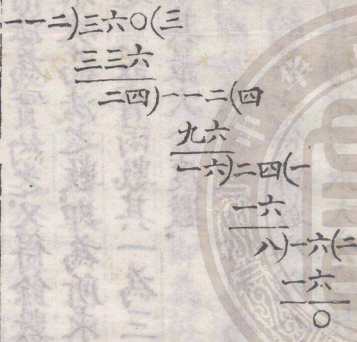 一一二)三六〇(三
三三六
二四)一一二(四
九六
一六)二四(一
一六
八)一六(二
一六
〇